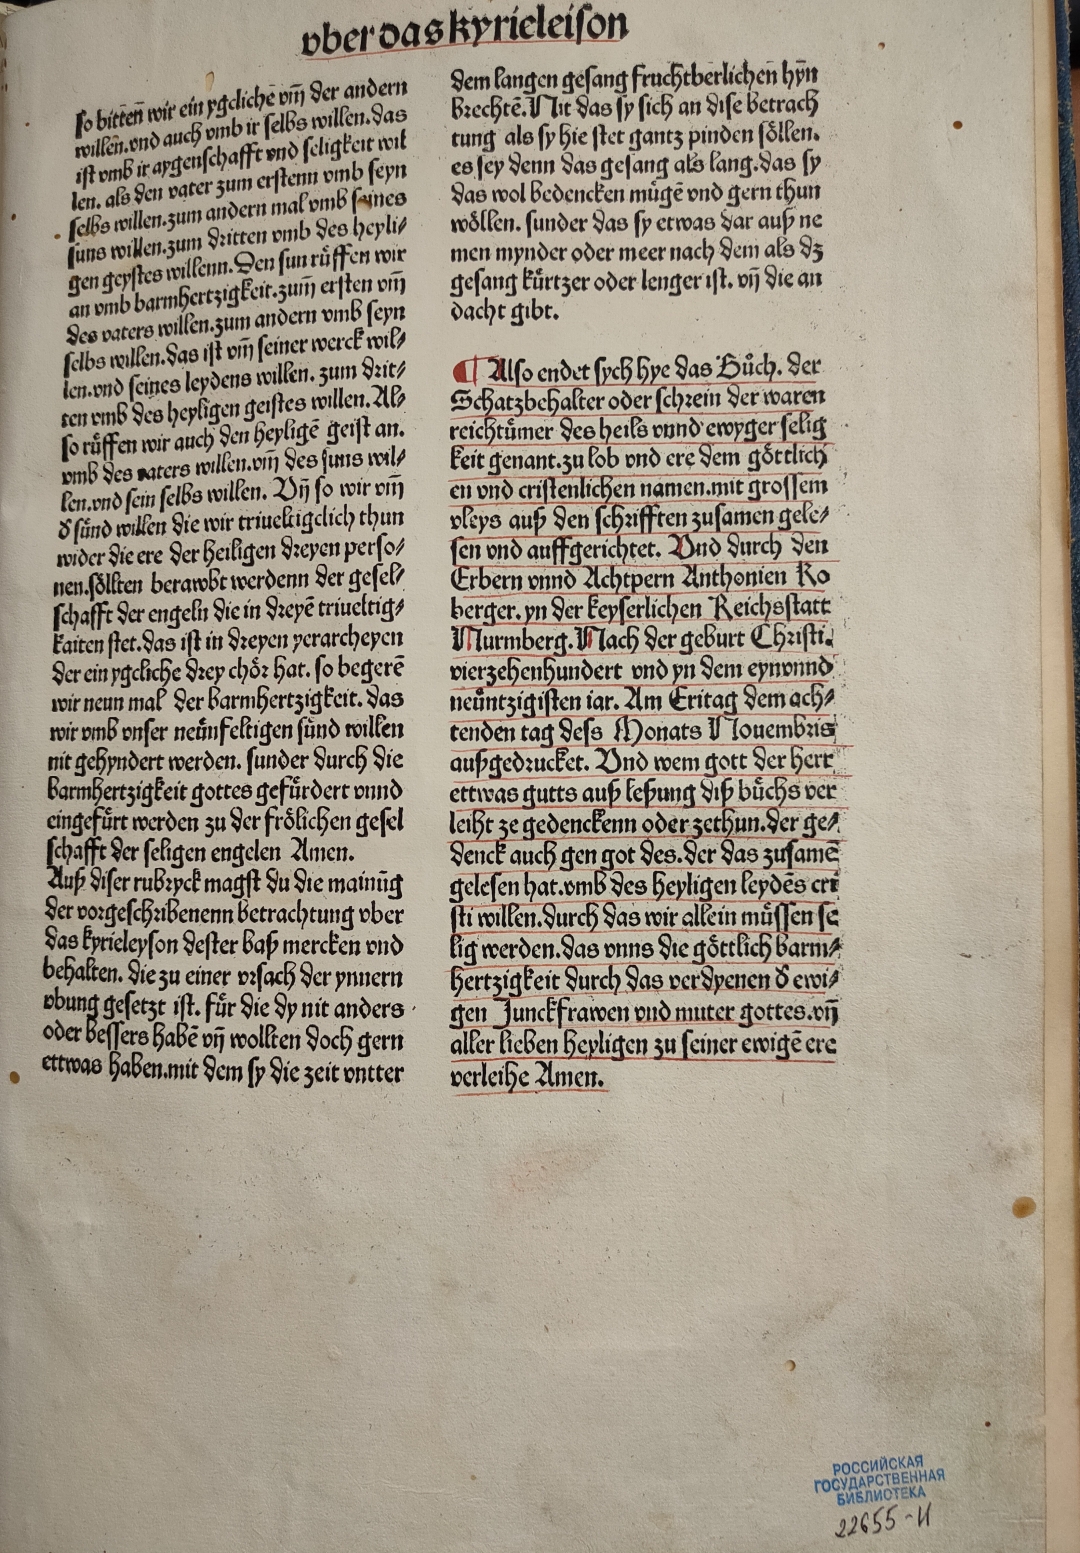 vber das kyrieleison
so bitten̄ wir ein ygclichē vm̄ der andern
willen. vnd auch vmb ir selbs willen. das
ist vmb ir aygenschafft vnd seligkeit wil
len. als den vater zum erstenn vmb seyn
selbs willen. zum andern mal vmb seines
suns willen. zum dritten vmb des heyli⸗
gen geystes willenn. Den sun rüffen wir
an vmb barmhertzigkeit. zum̄ ersten vm̄
des vaters willen. zum andern vmb seyn
selbs willen. das ist vm̄ seiner werck wil⸗
len. vnd seines leydens willen. zum drit⸗
ten vmb des heyligen geistes willen. Al⸗
so rüffen wir auch den heyligē geist an.
vmb des vaters willen. vm̄ des suns wil⸗
len. vnd sein selbs willen. Vn̄ so wir vm̄
d̕ sünd willen die wir triueltigclich thun
wider die ere der heiligen dreyen perso⸗
nen. söllten berawbt werdenn der gesel⸗
schafft der engeln die in dreyē triueltig⸗
kaiten stet. das ist in dreyen yerarcheyen
der ein ygcliche drey chör hat. so begerē
wir neun mal der barmhertzigkeit. das
wir vmb vnser neünfeltigen sünd willen
nit gehyndert werden. sunder durch die
barmhertzigkeit gottes gefürdert vnnd
eingefürt werden zu der frölichen gesel
schafft der seligen engelen Amen.
Auß diser rubryck magst du die mainūg
der vorgeschribenenn betrachtung vber
das kyrieleyson dester baß mercken vnd
behalten. die zu einer vrsach der ynnern
vbung gesetzt ist. für die dy nit anders
oder bessers habē vn̄ wollten doch gern
ettwas haben. mit dem sy die zeit vntter
dem langen gesang fruchtberlichen hyn
brechtē. Nit das sy sich an dise betrach
tung als sy hie stet gantz pinden söllen.
es sey denn das gesang als lang. das sy
das wol bedencken mügē vnd gern thun
wöllen. sunder das sy etwas dar auß ne
men mynder oder meer nach dem als dz
gesang kürtzer oder lenger ist. vn̄ die an
dacht gibt.
¶ Also endet sych hye das Bůch. der
Schatzbehalter oder schrein der waren
reichtümer des heils vnnd ewyger selig
keit genant. zu lob vnd ere dem göttlich
en vnd cristenlichen namen. mit grossem
vleys auß den schrifften zusamen gele⸗
sen vnd auffgerichtet. Vnd durch den
Erbern vnnd Achtpern Anthonien Ko
berger. yn der keyserlichen Reichsstatt
Nurmberg. Nach der geburt Christi.
vierzehenhundert vnd yn dem eynvnnd
neüntzigisten iar. Am Eritag dem ach⸗
tenden tag dess Monats Nouembris
außgedrucket. Vnd wem gott der herr
ettwas gutts auß leßung diß büchs ver
leiht ze gedenckenn oder zethun. der ge⸗
denck auch gen got des. der das zusamē
gelesen hat. vmb des heyligen leydēs cri
sti willen. durch das wir allein müssen se
lig werden. das vnns die göttlich barm⸗
hertzigkeit durch das verdyenen d̕ ewi⸗
gen Junckfrawen vnd muter gottes. vn̄
aller lieben heyligen zu seiner ewigē ere
verleihe Amen.
РОССИЙСКАЯ
ГОСУДАРСТВЕННАЯ
БИБЛИОТЕКА
22655-И